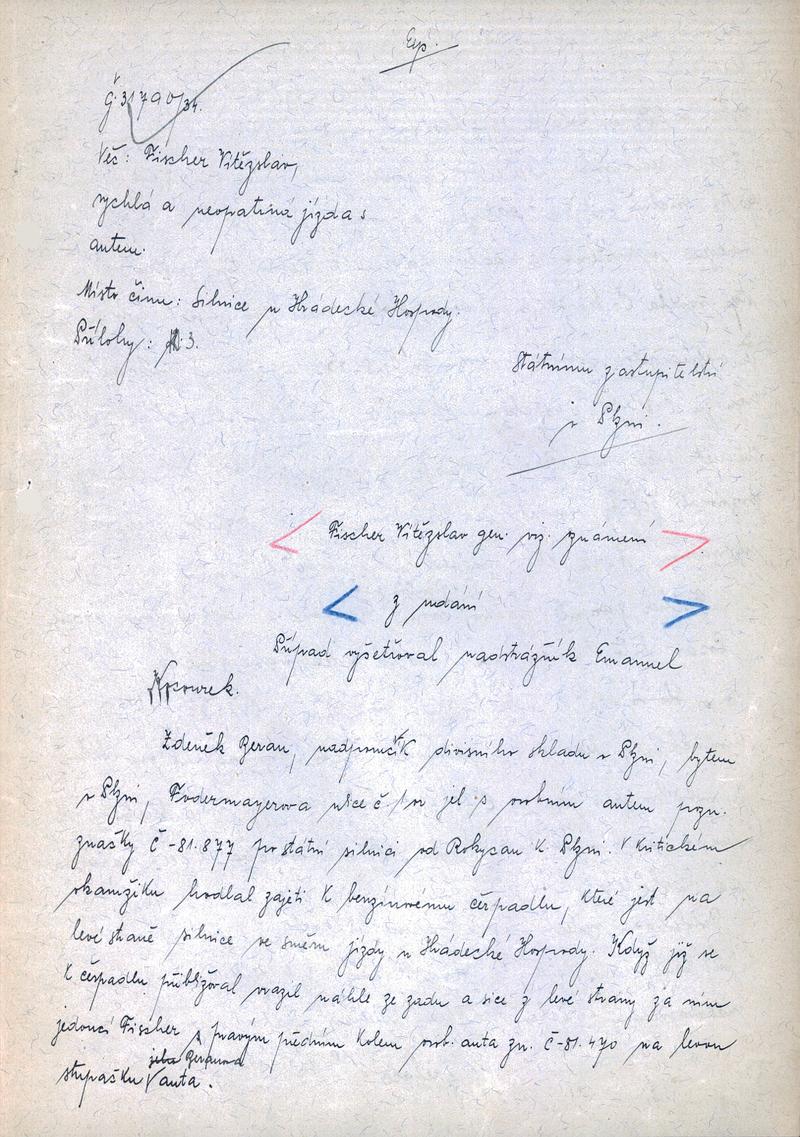 Exp.
Č. 31790/34.
Věc: Fischer Vítězslav,
rychlá a neopatrná jízda s
autem.
Místo činu: Silnice u Hrádecké Hospody.
Přílohy: 3.
Státnímu zastupitelství
v Plzni.
Fischer Vítězslav gen. viz. známení
z udání
Případ vyšetřoval nadstrážník Emanuel
Zdeněk Beran, nadporučík divisního skladu v Plzni, bytem
v Plzni, Fodermayerova ulice č. jel s osobním autem pozn.
značky Č-81.877 po státní silnici od Rokycan k Plzni. V kritickém
okamžiku hodlal zajeti k benzinovému čerpadlu, které jest na
levé straně silnice ve směru jízdy u Hrádecké Hospody. Když již se
k čerpadlu přibližoval vrazil náhle ze zadu a sice z levé strany za ním
jedoucí Fischer pravým předním kolem osob. auta zn. Č-81.470 na levou
jeho Beranova
stupačku auta.